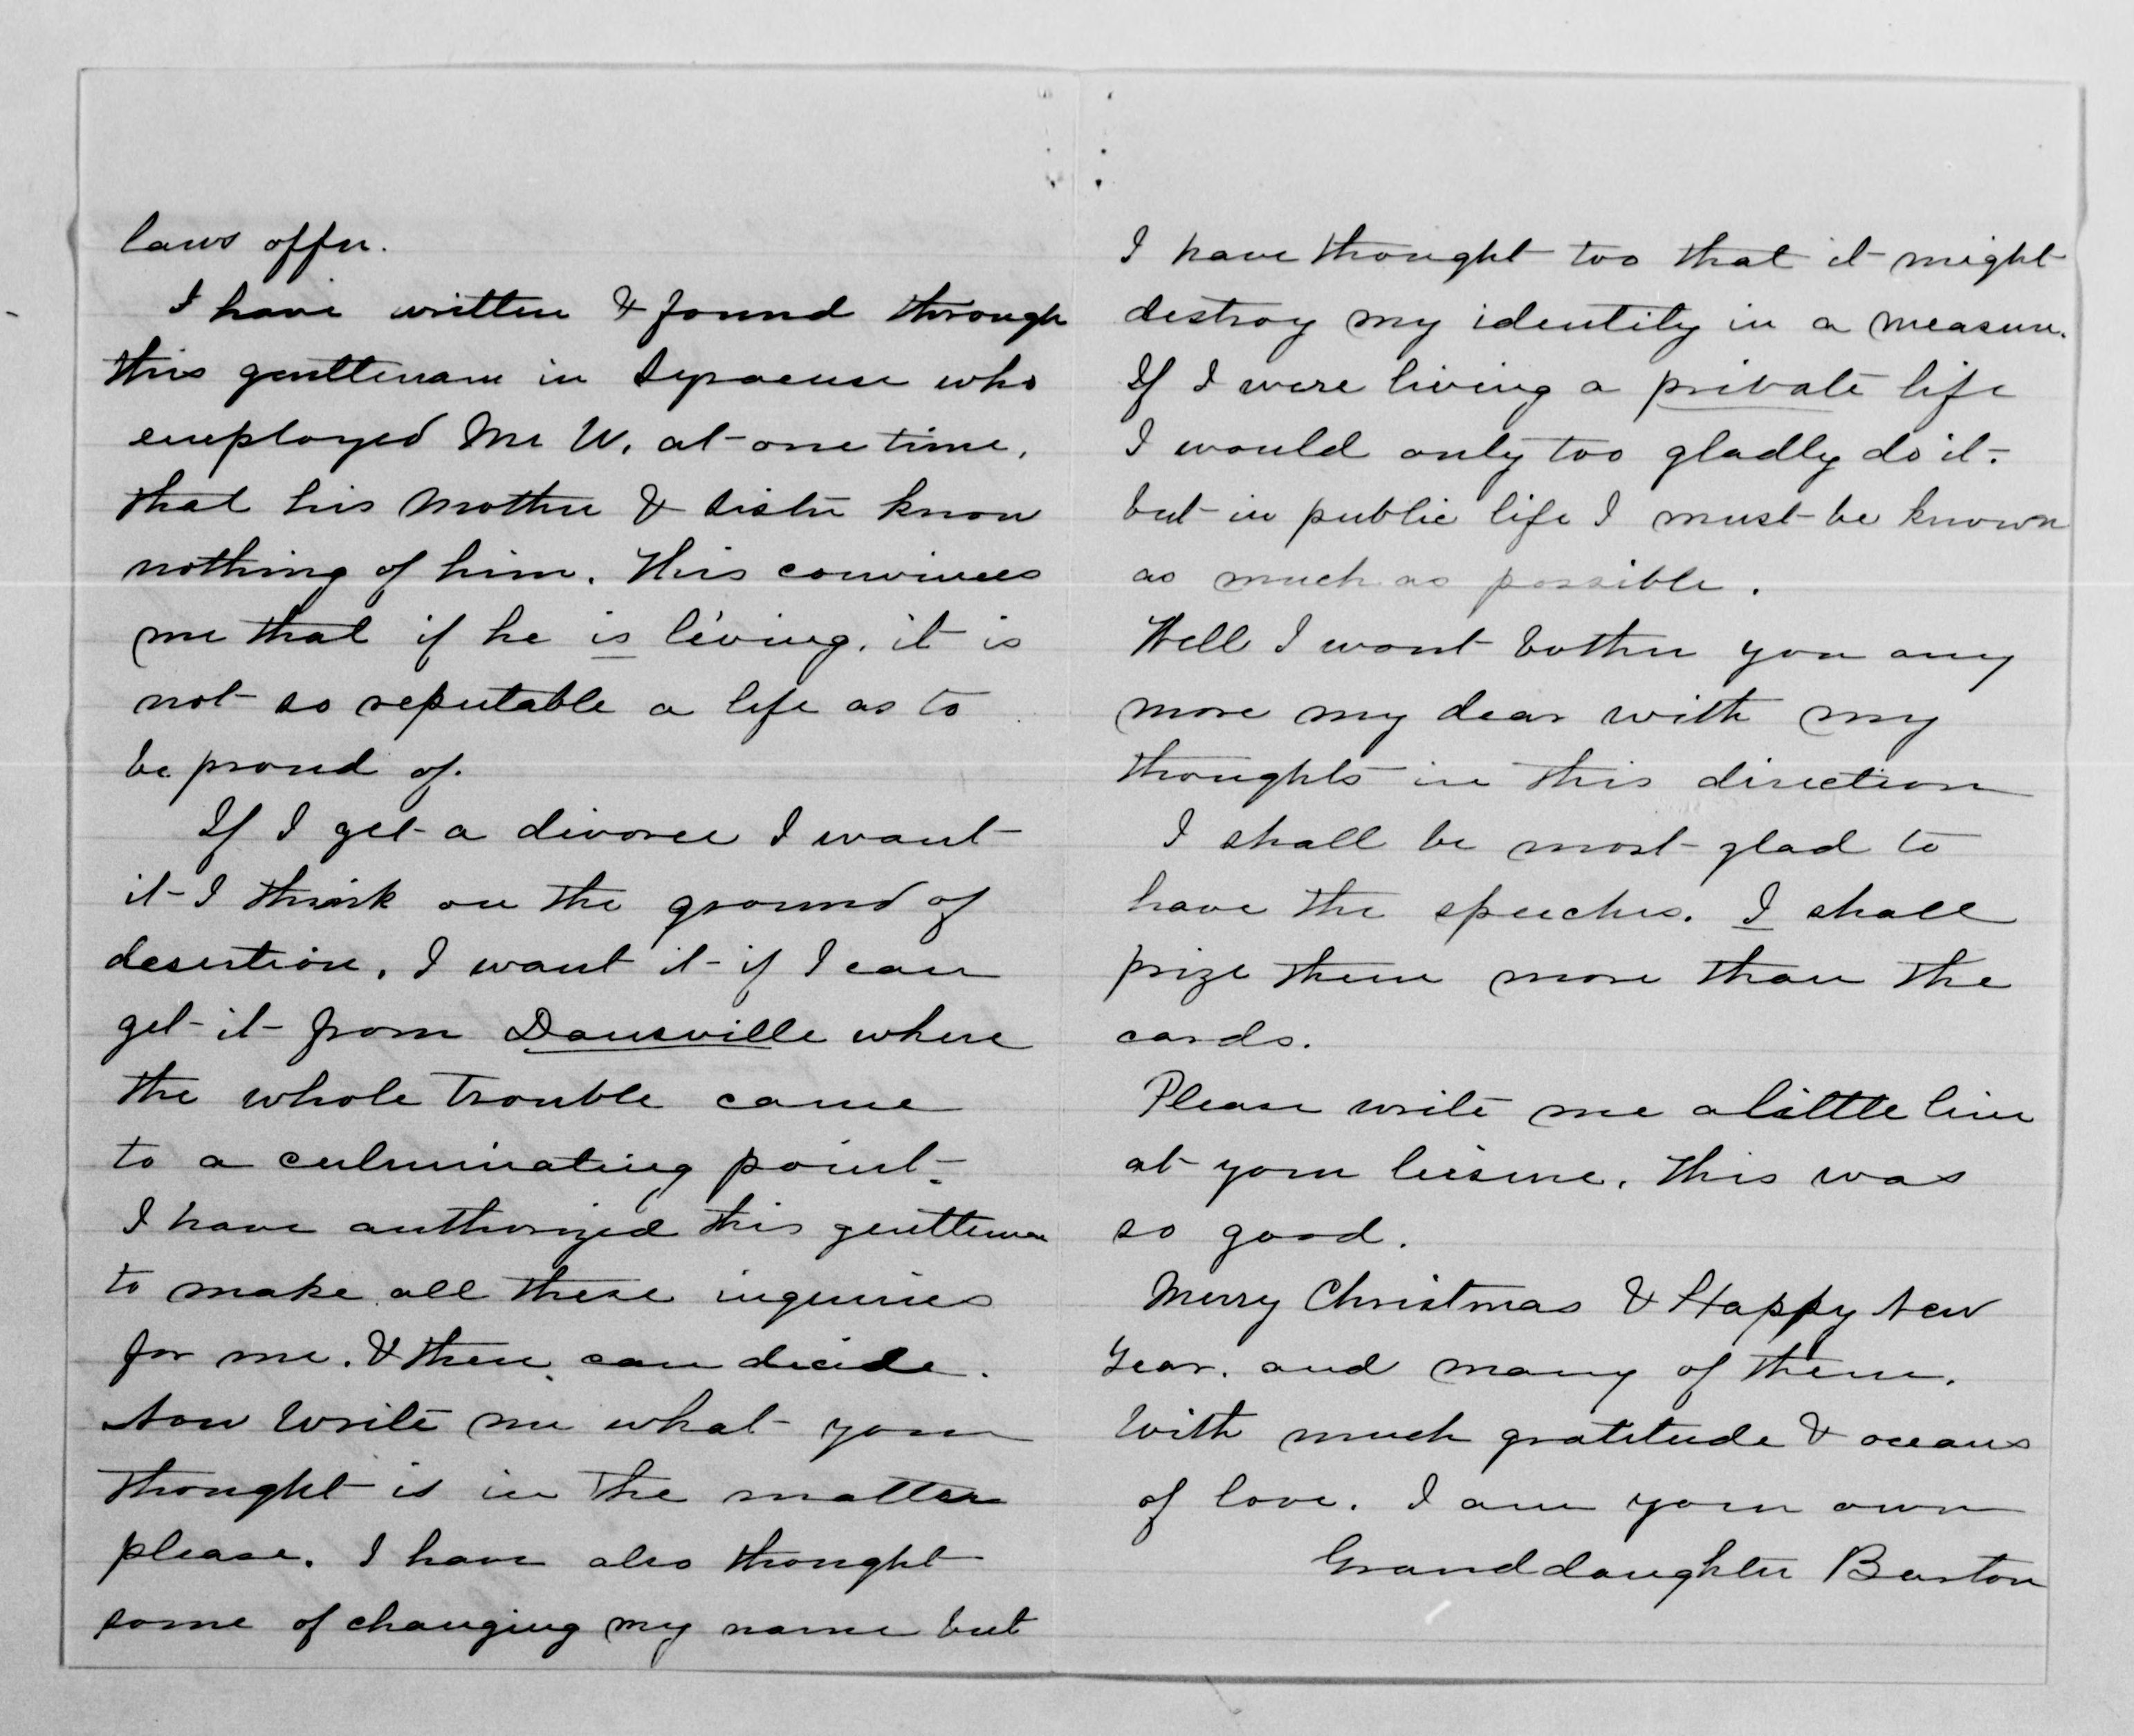 laws offer.
I have written & found through
this gentleman in Syracuse who
employed Mr W. at one time,
that his Mother & Sister know
nothing of him. This convinces
me that if he is living, it is
not so reputable a life as to
be proud of.
If I get a divorce I want
it I think on the ground of
desertion. I want it if I can
get it from Dansville where
the whole trouble came
to a culminating point.
I have authorized this gentleman
to make all these inquiries
for me. & then can decide.
Now write me what your
thought is in the matter
please. I have also thought
some of changing my name but
I have thought too that it might
destroy my identity in a measure.
If I were living a private life
I would only too gladly do it.
but in public life I must be known
as much as possible.
Well I wont bother you any
more my dear with my
thoughts in this direction
I shall be most glad to
have the speeches. I shall
prize them more than the
cards.
Please write me a little line
at your leisure. This was
so good.
Merry Christmas & Happy New
Year. and many of them.
With much gratitude & oceans
of love. I am your own
Granddaughter Barton